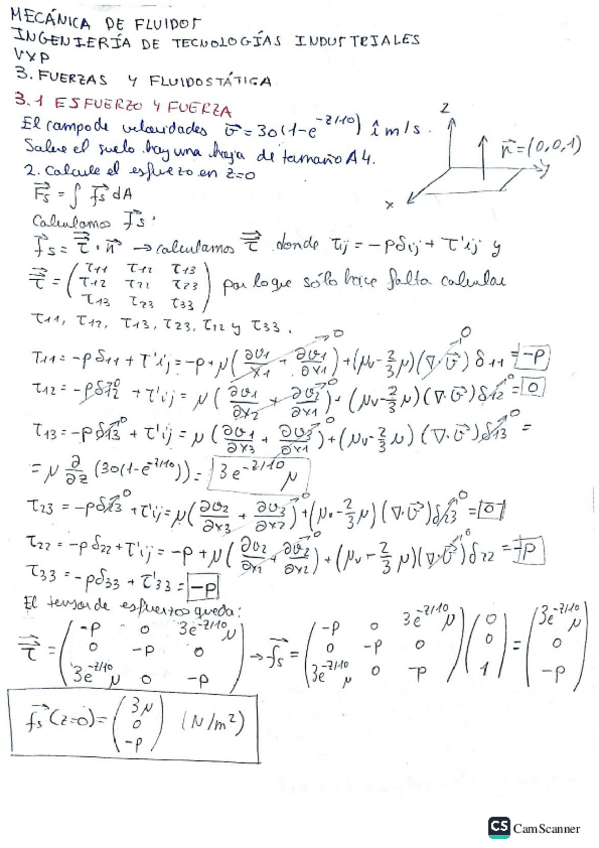 MECÁNICA DE FLUIDOS
INGENIERÍA DE TECNOLOGÍAS INDUSTRIALES
VXP
3. FUERZAS Y FLUIDOSTÁTICA
3.1 ESFUERZO Y FUERZA
El campo de velocidades v⃗ = 30(1-e^(-z/10)) î m/s.
Sobre el suelo hay una hoja de tamaño A4.
2. Calcule el esfuerzo en z=0
z
n⃗ = (0,0,1)
y
x
F⃗s = ∫ f⃗s dA
Calculamos f⃗s.
f⃗s = τ⃗⃗ · n⃗ → calculamos τ⃗⃗ donde τij = -pδij + τ'ij y
τ⃗⃗ = (τ11 τ12 τ13; τ12 τ22 τ23; τ13 τ23 τ33) por lo que sólo hace falta calcular
τ11, τ12, τ13, τ23, τ22 y τ33.
τ11 = -pδ11 + τ'ij = -p + μ(∂v1/x1 + ∂v1/∂x1)→0 + (μv - 2/3 μ)(∇·v⃗)→0 δ11 = -p
τ12 = -pδ12→0 + τ'ij = μ(∂v1/∂x2 + ∂v2/∂x1)→0 + (μv - 2/3 μ)(∇·v⃗)δ12→0 = 0
τ13 = -pδ13→0 + τ'ij = μ(∂v1/∂x3 + ∂v3/∂x1)→0 + (μv - 2/3 μ)(∇·v⃗)δ13→0 =
= μ ∂/∂z (30(1-e^(-z/10))) = 3e^(-z/10) μ
τ23 = -pδ23→0 + τ'ij = μ(∂v2/∂x3 + ∂v3/∂x2)→0 + (μv - 2/3 μ)(∇·v⃗)δ23→0 = 0
τ22 = -pδ22 + τ'ij = -p + μ(∂v2/∂x2 + ∂v2/∂x2)→0 + (μv - 2/3 μ)(∇·v⃗)→0 δ22 = -p
τ33 = -pδ33 + τ'33 = -p
El tensor de esfuerzos queda:
τ⃗⃗ = (-p 0 3e^(-z/10)μ; 0 -p 0; 3e^(-z/10)μ 0 -p) → f⃗s = (-p 0 3e^(-z/10)μ; 0 -p 0; 3e^(-z/10)μ 0 -p)(0; 0; 1) = (3e^(-z/10)μ; 0; -p)
f⃗s (z=0) = (3μ; 0; -p) (N/m²)
CS CamScanner